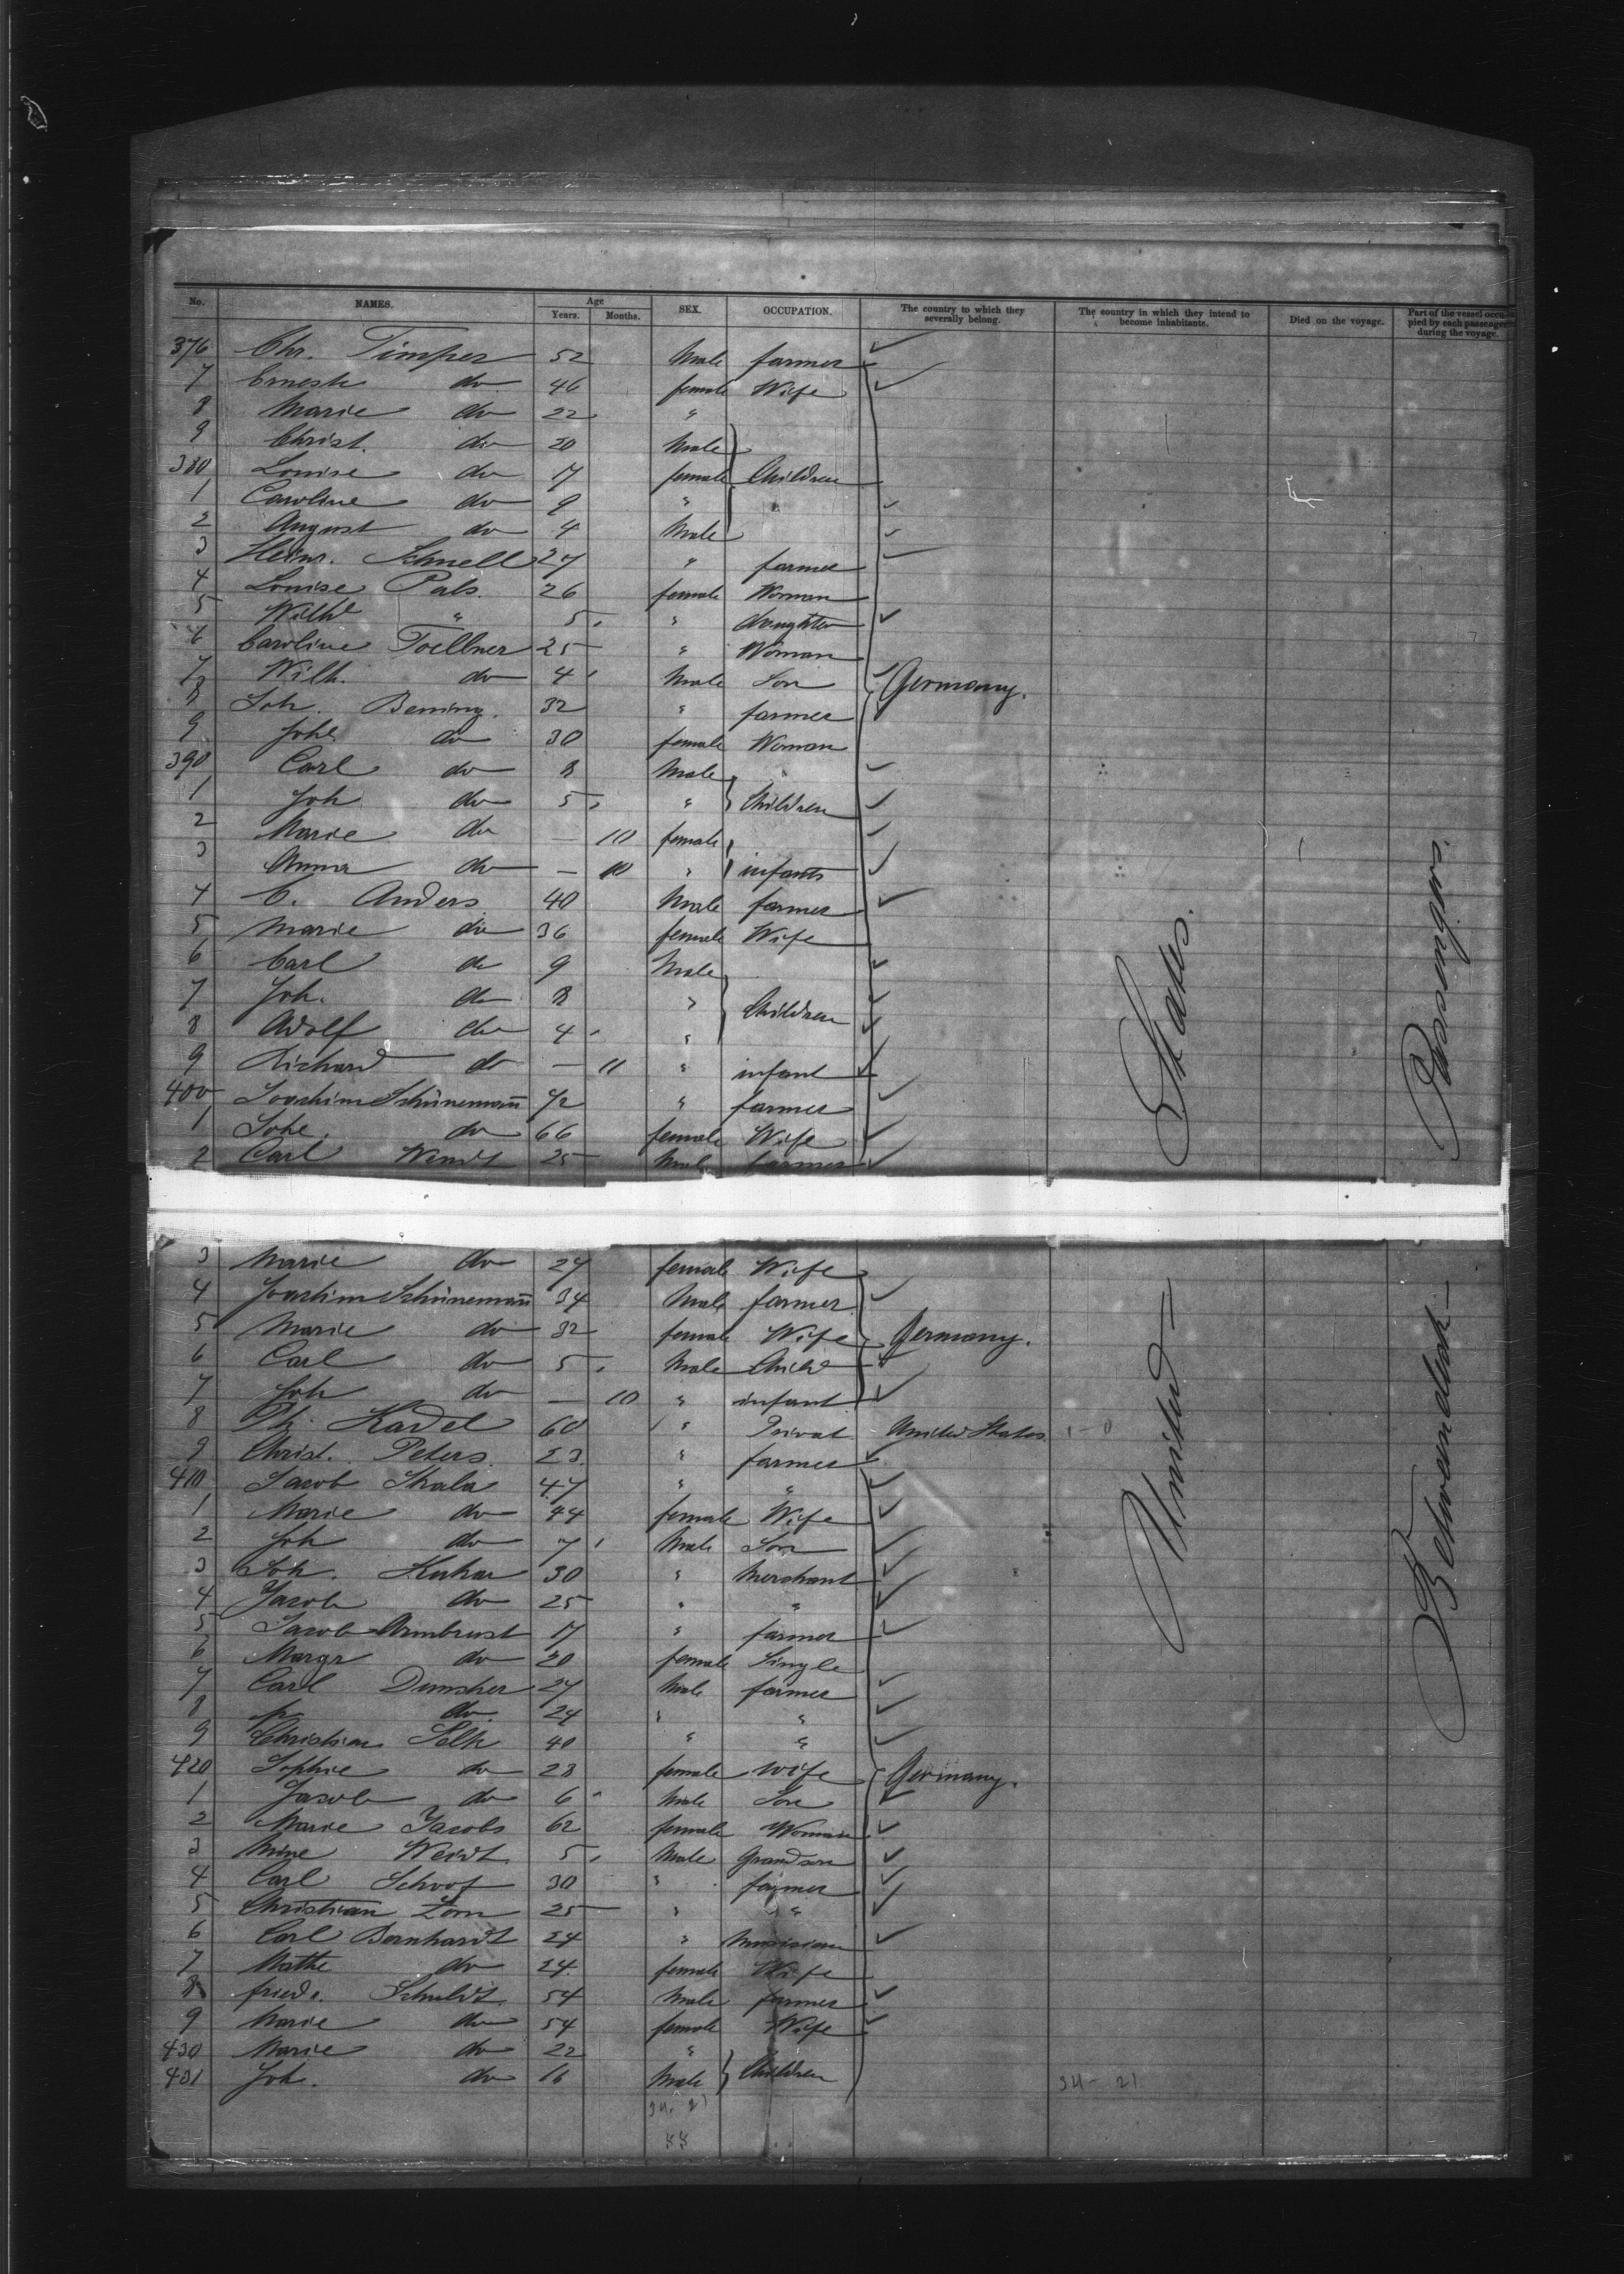 No. NAMES. Age Years. Months. SEX. OCCUPATION. The country to which they severally belong. The country in which they intend to become inhabitants. Died on the voyage. Part of the vessel occupied by each passenger during the voyage.
376 Chr. Timper 52 Male farmer
7 Ernest do 46 female Wife
8 Marie do 22 "
9 Christ. do 20 Male
380 Louise do 17 female Children
1 Caroline do 9 "
2 August do 4 Male
3 Heinr. Schnell 27 " farmer
4 Louise Pals. 26 female Woman
5 Wilhe " 5 " daughter
6 Caroline Toellner 25 " Woman
7 Wilh. do 4 Male Son Germany.
8 Joh. Bening. 32 " farmer
9 Johe do 30 female Woman
390 Carl do 8 Male
1 Joh do 5 " Children
2 Marie do — 10 female
3 Anna do — 10 " infants
4 C. Anders 40 Male farmer
5 Marie do 36 female Wife
6 Carl do 9 Male
7 Joh. do 8 " Children
8 Adolf do 4 "
9 Richard do — 11 " infant
400 Joachim Schünemann 72 " farmer
1 Johe. do 66 female Wife
2 Carl Wendt 25 Male farmer
3 Marie do 27 female Wife
4 Joachim Schünemann 34 Male farmer
5 Marie do 32 female Wife Germany.
6 Carl do 5 Male Child
7 Joh do — 10 " infant
8 Ph. Kadel 60 " Privat United States 1-0
9 Christ. Peters. 23 " farmer
410 Jacob Skala 47 " "
1 Marie do 44 female Wife
2 Joh do 7 Male Son
3 Joh. Kuhar 30 " Merchant
4 Jacob do 25 " "
5 Jacob Armbrust 17 " farmer
6 Margr do 20 female Single
7 Carl Dumsher 27 Male farmer
8 do. 24 " "
9 Christian Selk 40 " "
420 Sophie do 28 female Wife Germany.
1 Jacob do 6 Male Son
2 Marie Jacobs 62 female Woman
3 Mine Wendt 5 Male Grandson
4 Carl Schoof 30 " farmer
5 Christian Zorn 25 " "
6 Carl Bernhardt 24 " Musician
7 Mathe do 24 female Wife
8 friedr. Schuldt. 54 Male farmer
9 Marie do 54 female Wife
430 Marie do 22 "
431 Joh. do 16 Male Children 34-21
34. 21
55
United — States.
Betweendeck — Passengers.